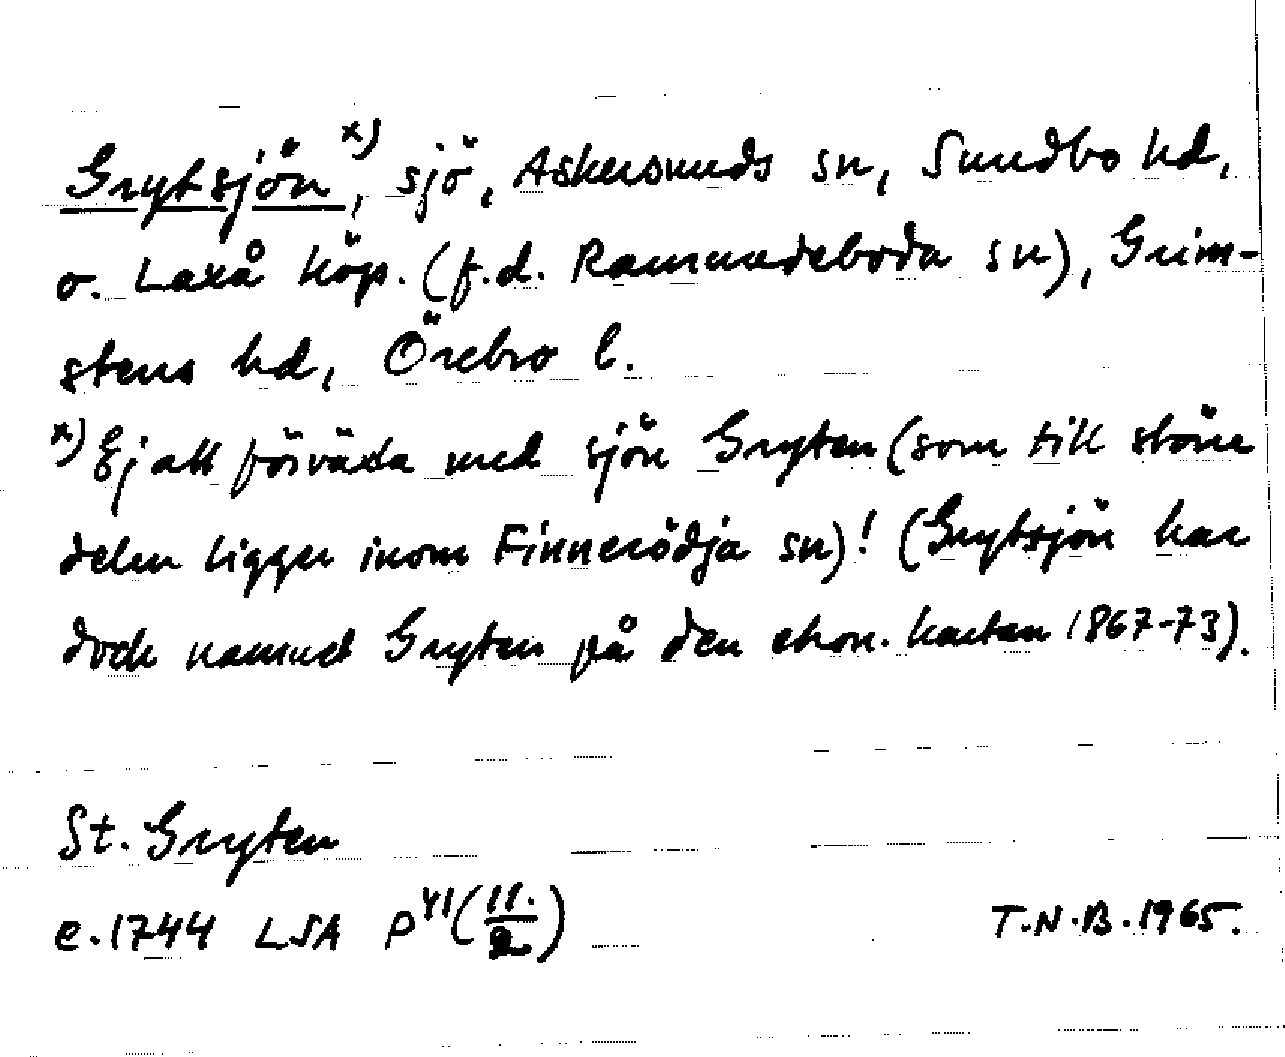 Grytsjön x), sjö, Askersunds sn, Sundbo hd,
o. Laxå köp. (f.d. Ramundeboda sn), Grim-
stens hd, Örebro l.
x) Ej att förväxla med sjön Gryten (som till större
delen ligger inom Finnerödja sn)! (Grytsjön har
dock namnet Gryten på den ekon. kartan 1867-73).
St. Gryten
e. 1744 LSA P41 (11./2)
T.N.B. 1965.